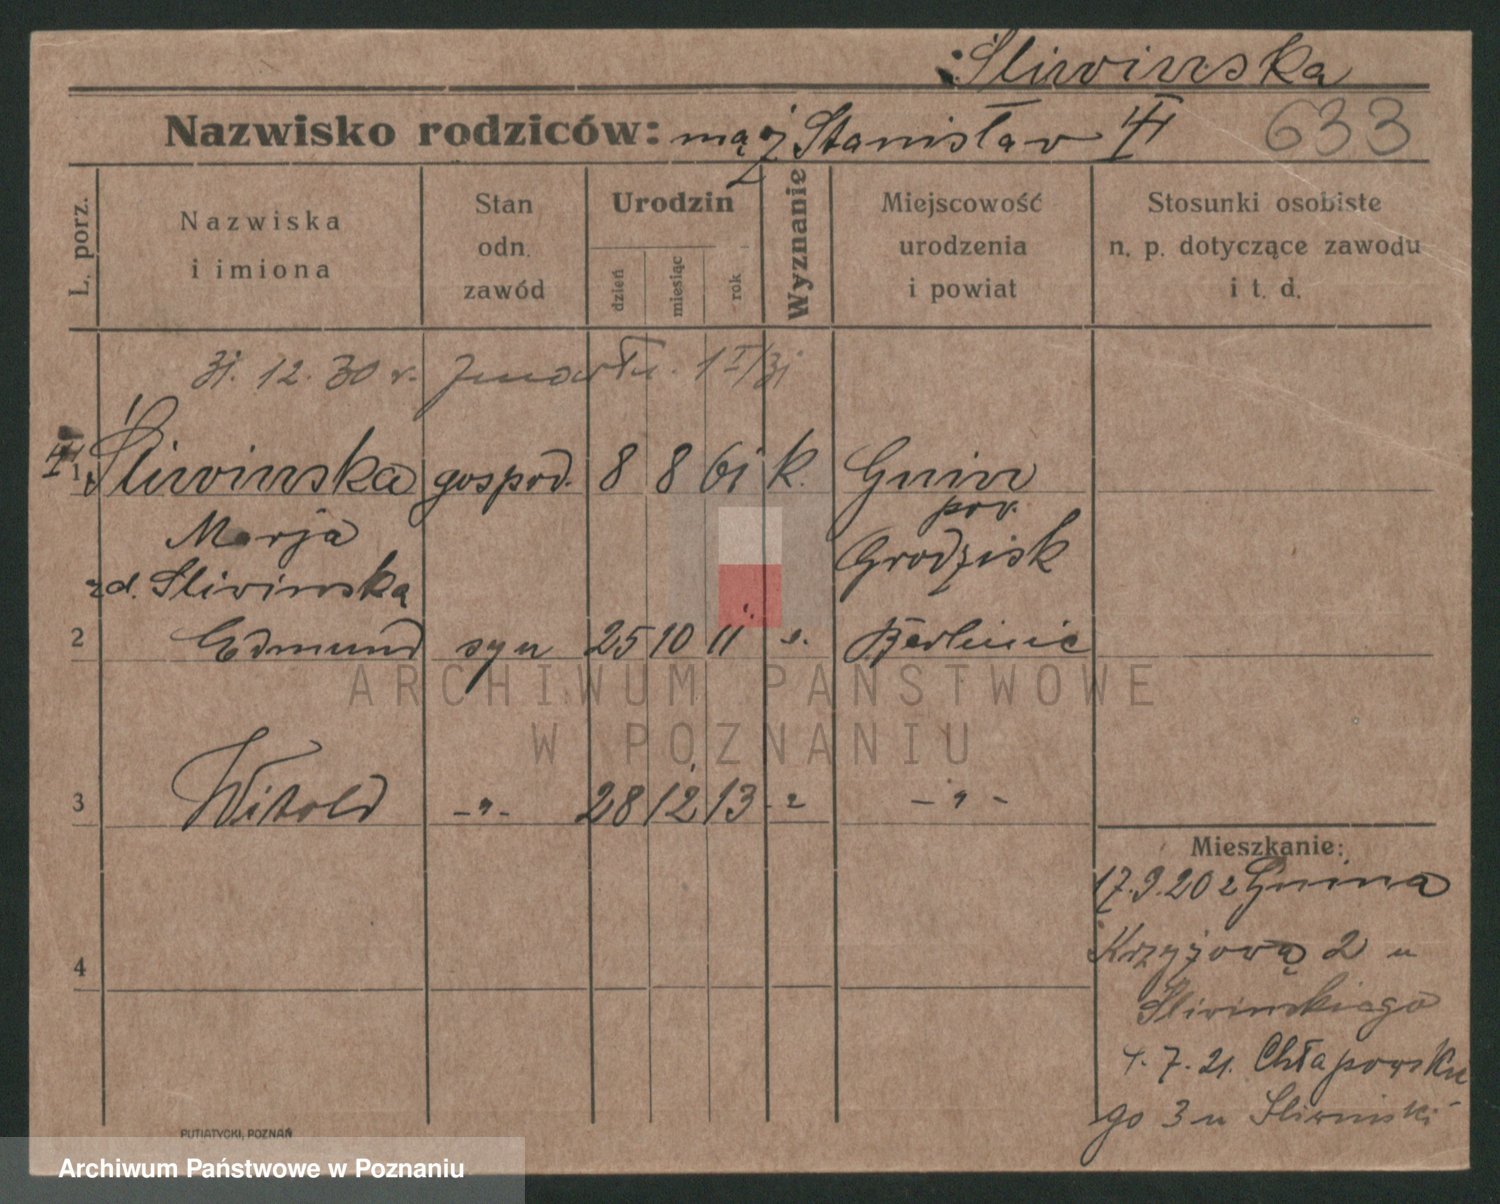 Śliwińska
Nazwisko rodziców: mąż Stanisław 633
L. porz.
Nazwiska
i imiona
Stan
odn.
zawód
Urodzin
dzień
miesiąc
rok
Wyznanie
Miejscowość
urodzenia
i powiat
Stosunki osobiste
n. p. dotyczące zawodu
i t. d.
31. 12. 30 r. zmarła. 1 I/31
1 Śliwińska gospod. 8 8 61 k. Gnin
pow.
Marja Grodzisk
zd. Sliwinska
2 Edmund syn 25 10 11 Berlinie
ARCHIWUM PAŃSTWOWE
W POZNANIU
3 Witold -"- 28 12 13 -"-
Mieszkanie:
17.9.20 z Gnina
Krzyżowa 2 u
4
Sliwinskiego
4.7.21. Chłapowskie
go 3 u Sliwinski
PUTIATYCKI, POZNAŃ
Archiwum Państwowe w Poznaniu